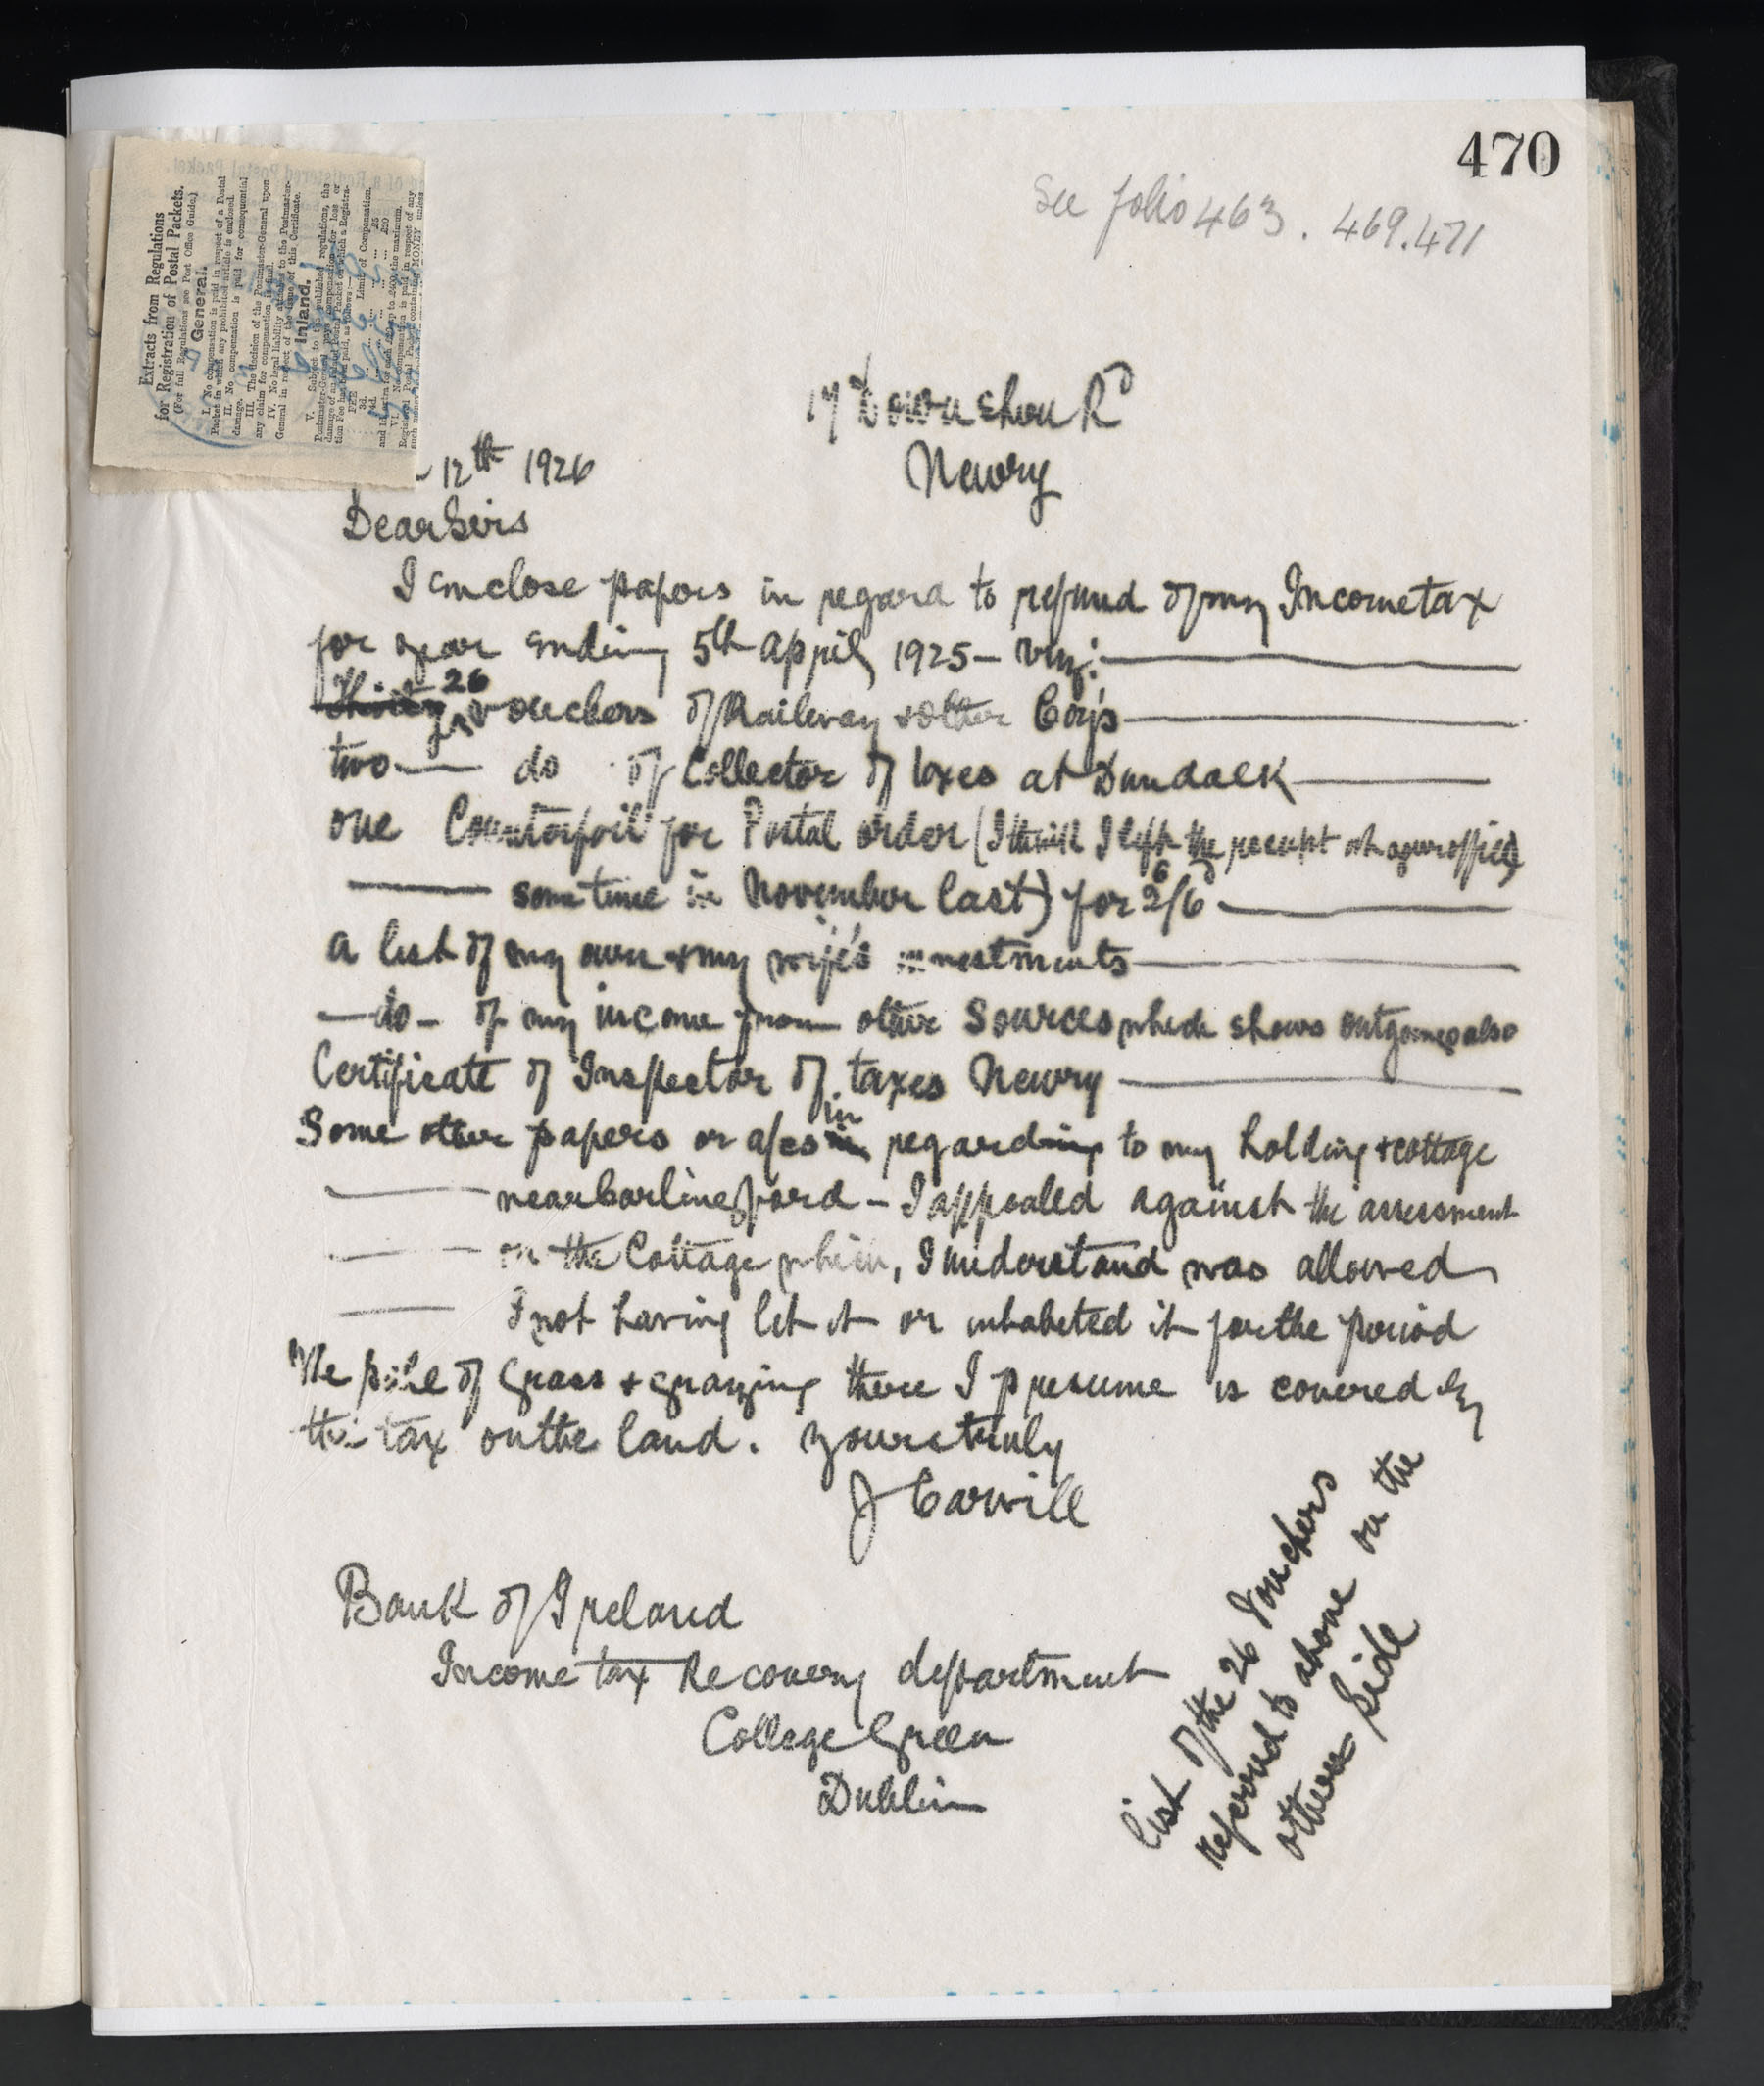 470
See folio 463. 469. 471
Extracts from Regulations
for Registration of Postal Packets.
(For full Regulations see Post Office Guide.)
General.
I. No compensation is paid in respect of a Postal
Packet in which any prohibited article is enclosed.
II. No compensation is paid for consequential
damage.
III. The decision of the Postmaster-General upon
any claim for compensation is final.
IV. No legal liability attaches to the Postmaster-
General in respect of the issue of this Certificate.
Inland.
V. Subject to the published regulations, the
Postmaster-General pays compensation for loss or
damage of an Inland Postal Packet on which a Registra-
tion Fee has been paid, as follows:—
FEE Limit of Compensation.
3d. ... £5
4d. ... £20
17 Downshire Rd
Newry
12th 1926
Dear Sirs
I enclose papers in regard to refund of my Income tax
for year ending 5th April, 1925 - viz:
Thirty 26 vouchers of Railway & other Coy's
two do of Collector of taxes at Dundalk
one Counterfoil for Postal order (I think I left the receipt at your office
sometime in November last) for 2/6
a list of my own & my wife's investments
- do - of my income from other sources which shows outgoings also
Certificate of Inspector of taxes Newry
Some other papers or a/cs in regarding to my holding & cottage
near Carlingford - I appealed against the assessment
on the Cottage which, I understand was allowed
I not having let it or inhabited it for the period
The sale of Grass & grazing there I presume is covered by
the tax on the land. Yours truly
J Carvill
Bank of Ireland
Income tax Recovery department
College Green
Dublin
List of the 26 Vouchers
referred to above on the
other side